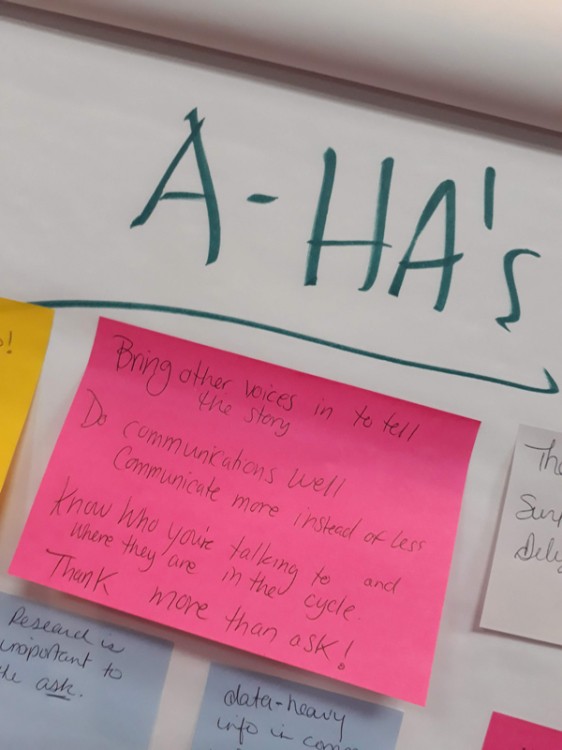 A-HA's
Bring other voices in to tell
the story
Do communications well
Communicate more instead of less
Know who you're talking to and
where they are in the cycle.
Thank more than ask!
Research is
important to
the ask.
data-heavy
info in